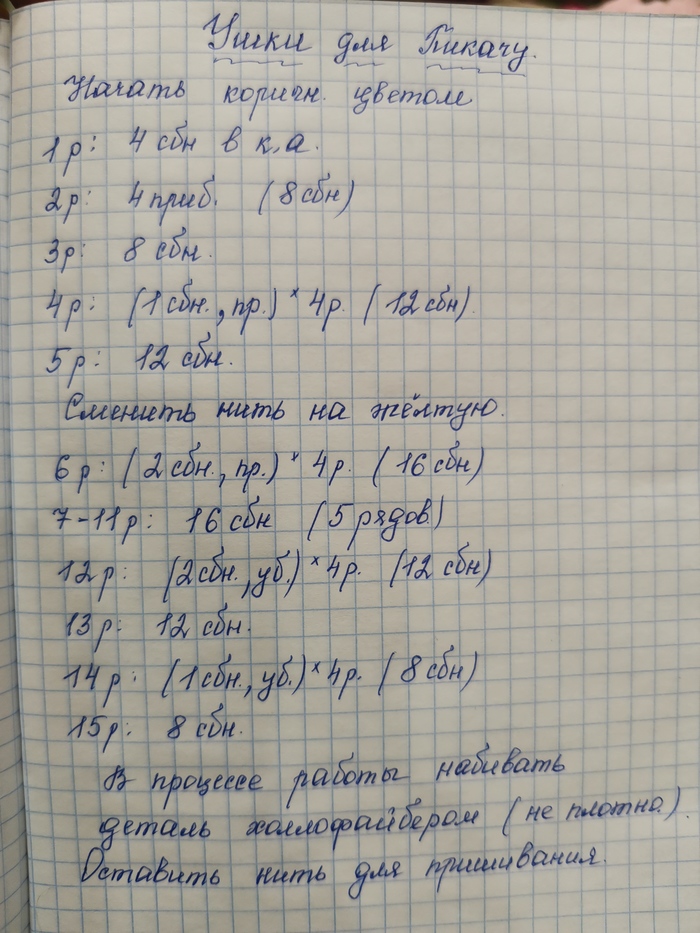 Ушки для Пикачу.
Начать коричн. цветом
1р: 4 сбн в к.а.
2р: 4 приб. (8 сбн)
3р: 8 сбн.
4р: (1 сбн., пр.) × 4р. (12 сбн).
5р: 12 сбн.
Сменить нить на жёлтую.
6р: (2 сбн., пр.) × 4р. (16 сбн)
7-11р: 16 сбн (5 рядов)
12р: (2 сбн., уб.) × 4р. (12 сбн)
13р: 12 сбн.
14р: (1 сбн., уб.) × 4р. (8 сбн)
15р: 8 сбн.
В процессе работы набивать
деталь холлофайбером (не плотно).
Оставить нить для пришивания.